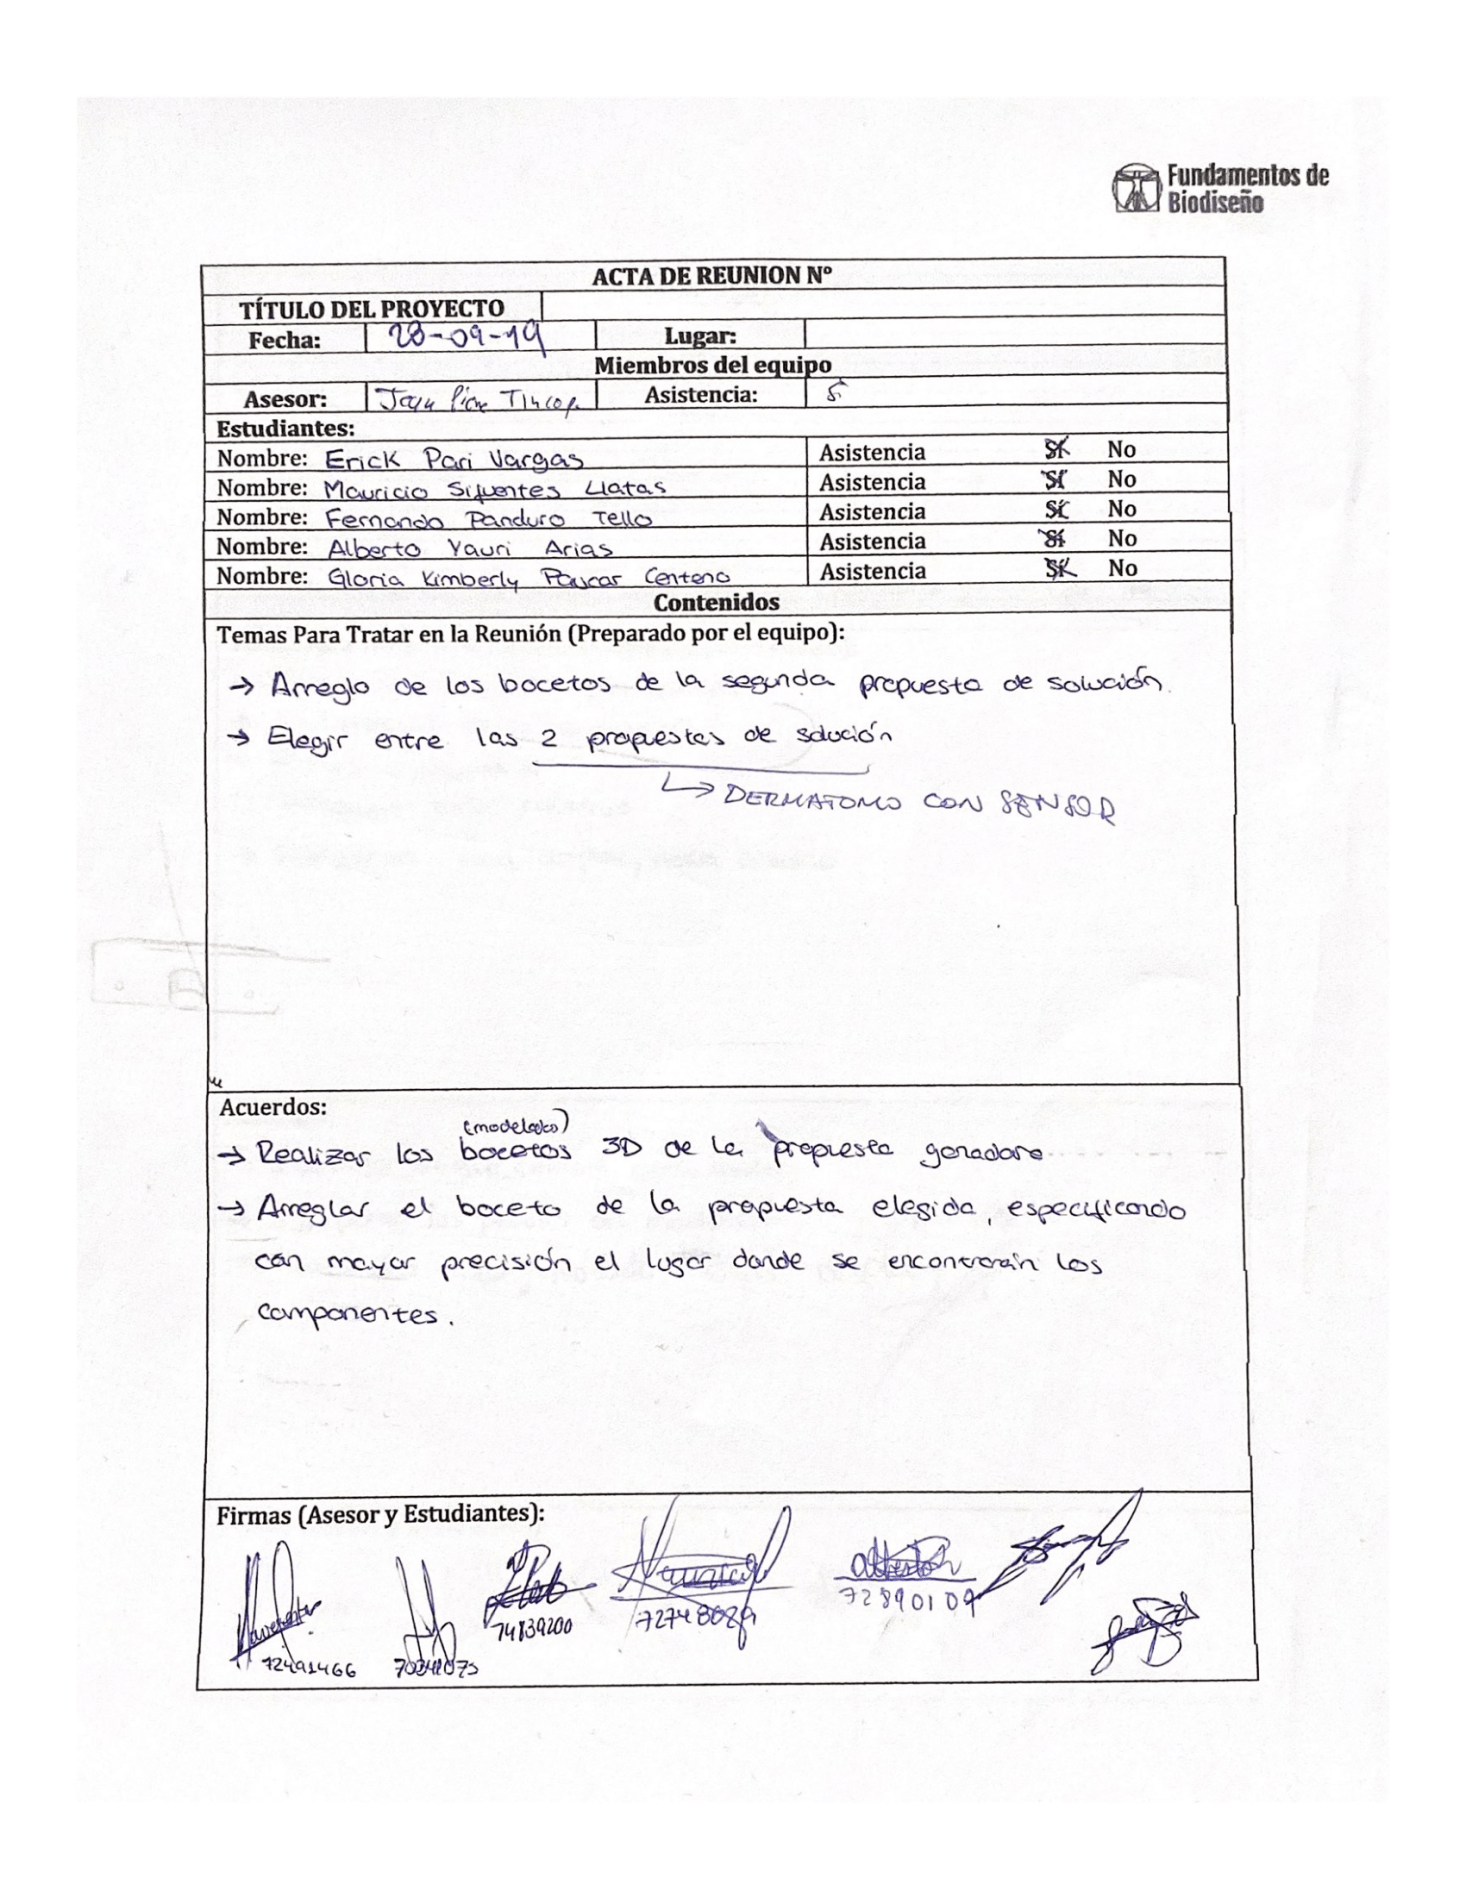 Fundamentos de
Biodiseño
ACTA DE REUNION Nº
TÍTULO DEL PROYECTO
Fecha: 28-09-19 Lugar:
Miembros del equipo
Asesor: Asistencia:
Estudiantes:
Nombre: Erick Pari Vargas Asistencia Sí No
Nombre: Mauricio Sifuentes Llatas Asistencia Sí No
Nombre: Fernando Panduro Tello Asistencia Sí No
Nombre: Alberto Yauri Arias Asistencia Sí No
Nombre: Gloria Kimberly Paucar Centeno Asistencia Sí No
Contenidos
Temas Para Tratar en la Reunión (Preparado por el equipo):
→ Arreglo de los bocetos de la segunda propuesta de solución.
→ Elegir entre las 2 propuestas de solución
↳ DERMATOMO CON SENSOR
Acuerdos:
(modelado)
→ Realizar los bocetos 3D de la propuesta ganadora
→ Arreglar el boceto de la propuesta elegida, especificando
con mayor precisión el lugar donde se encontrarán los
componentes.
Firmas (Asesor y Estudiantes):
74839200
72890109
72491466